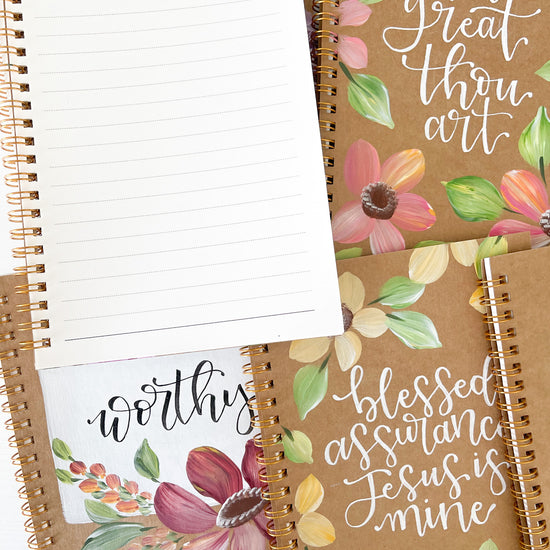 great
thou
art
worthy
blessed
assurance
Jesus is
mine